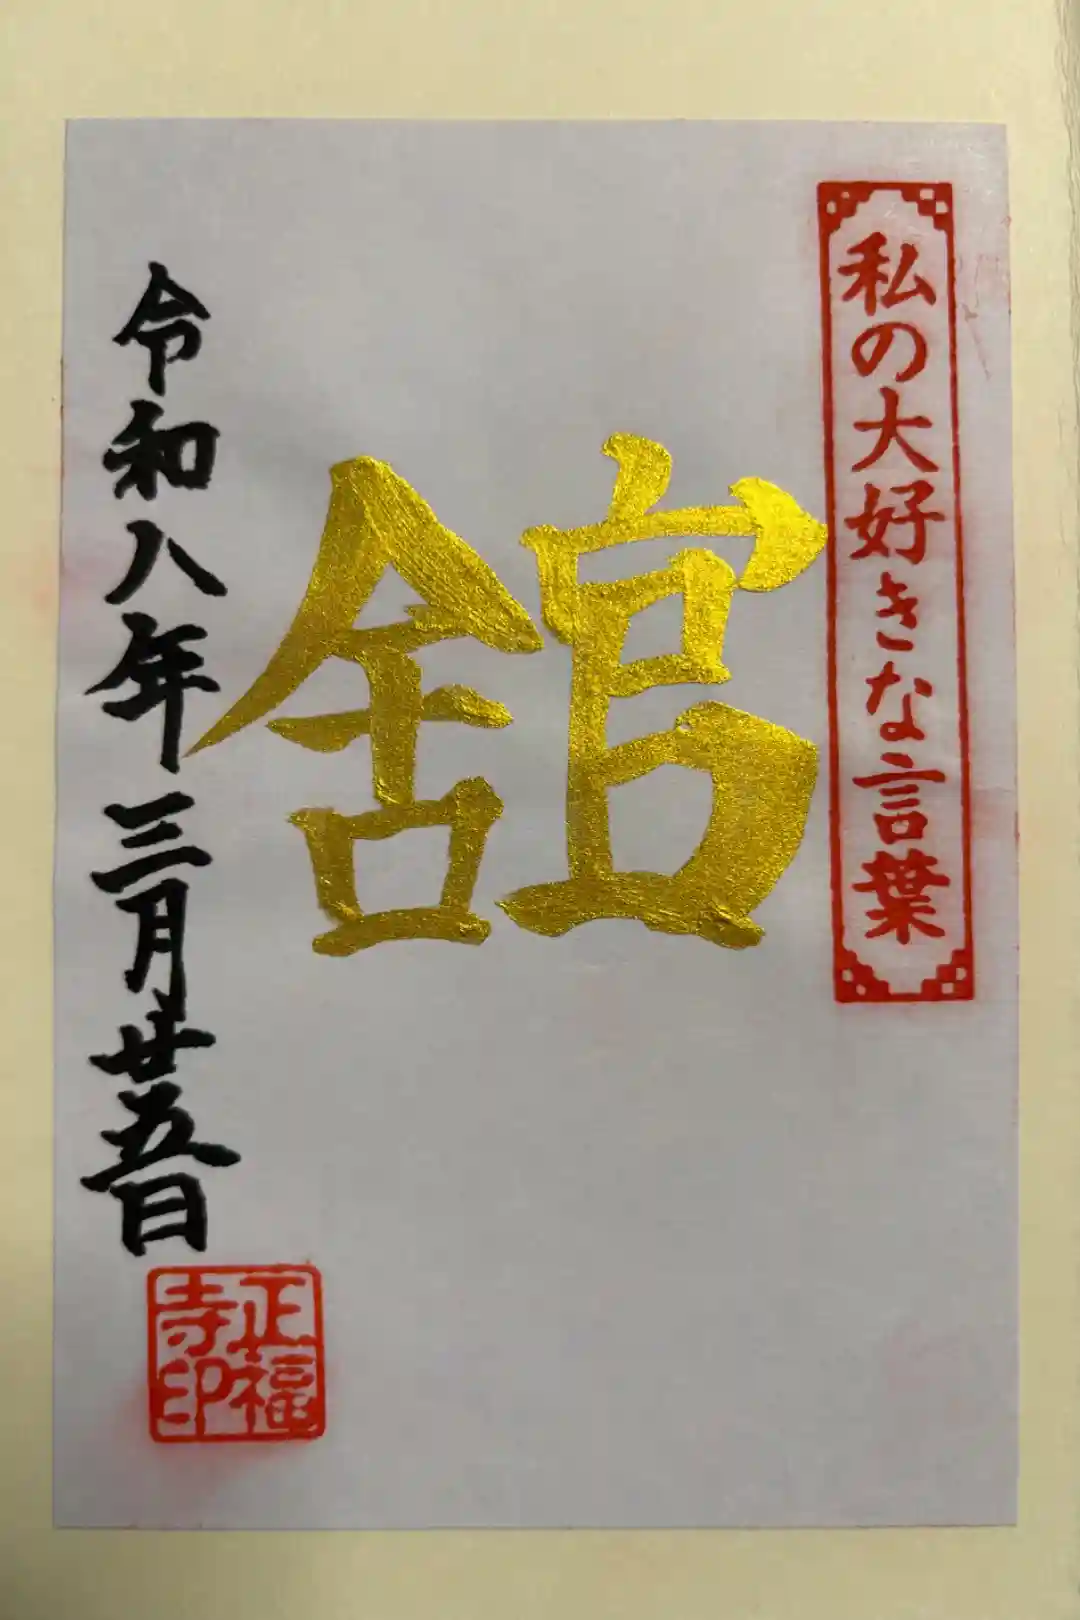 私の大好きな言葉
舘
令和八年三月廿五日
正福寺印